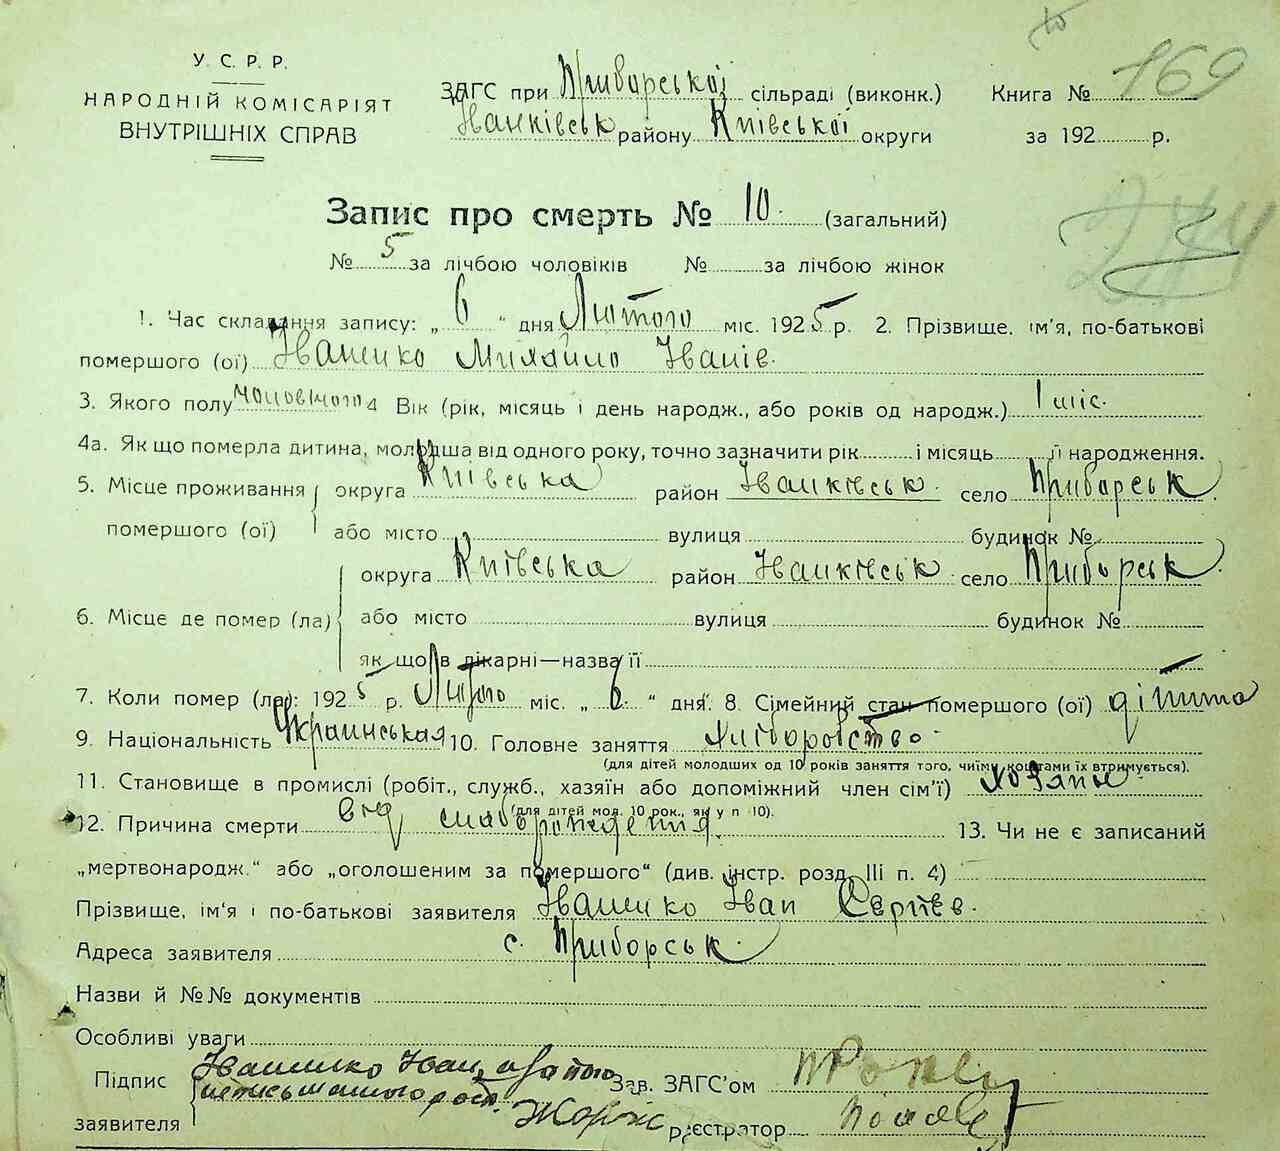 У. С. Р. Р.
НАРОДНІЙ КОМІСАРІЯТ
ВНУТРІШНІХ СПРАВ
ЗАГС при Приборської сільраді (виконк.)
Іванківськ району Київської округи
Книга № 169
за 192 р.
Запис про смерть № 10. (загальний)
№ 5 за лічбою чоловіків № за лічбою жінок
1. Час складання запису: „ 6 “ дня Лютого міс. 1925 р. 2. Прізвище, ім'я, по-батькові
помершого (ої) Іващенко Михайло Іванів.
3. Якого полу чоловічого 4 Вік (рік, місяць і день народж., або років од народж.) 1 міс.
4а. Як що померла дитина, молодша від одного року, точно зазначити рік і місяць її народження.
5. Місце проживання округа Київська район Іванківськ. село Приборськ
помершого (ої) або місто вулиця будинок №
округа Київська район Іванківськ село Приборськ
6. Місце де помер (ла) або місто вулиця будинок №
як що в лікарні—назва її
7. Коли помер (ла): 1925 р. Лютого міс. „ 6 “ дня. 8. Сімейний стан помершого (ої) дітина
9. Національність Украинськая 10. Головне заняття хліборобство.
(для дітей молодших од 10 років заняття того, чиїми коштами їх втримується).
11. Становище в промислі (робіт., служб., хазяїн або допоміжний член сім'ї) хозяїн
(для дітей мол. 10 рок., як у п 10).
12. Причина смерти від слаборождения. 13. Чи не є записаний
„мертвонародж.“ або „оголошеним за помершого“ (див. інстр. розд. III п. 4)
Прізвище, ім'я і по-батькові заявителя Іващенко Іван Сергіев.
Адреса заявителя с. Приборськ.
Назви й №№ документів
Особливі уваги
Підпис Іващенко Іван, Зав. ЗАГС'ом
заявителя реєстратор